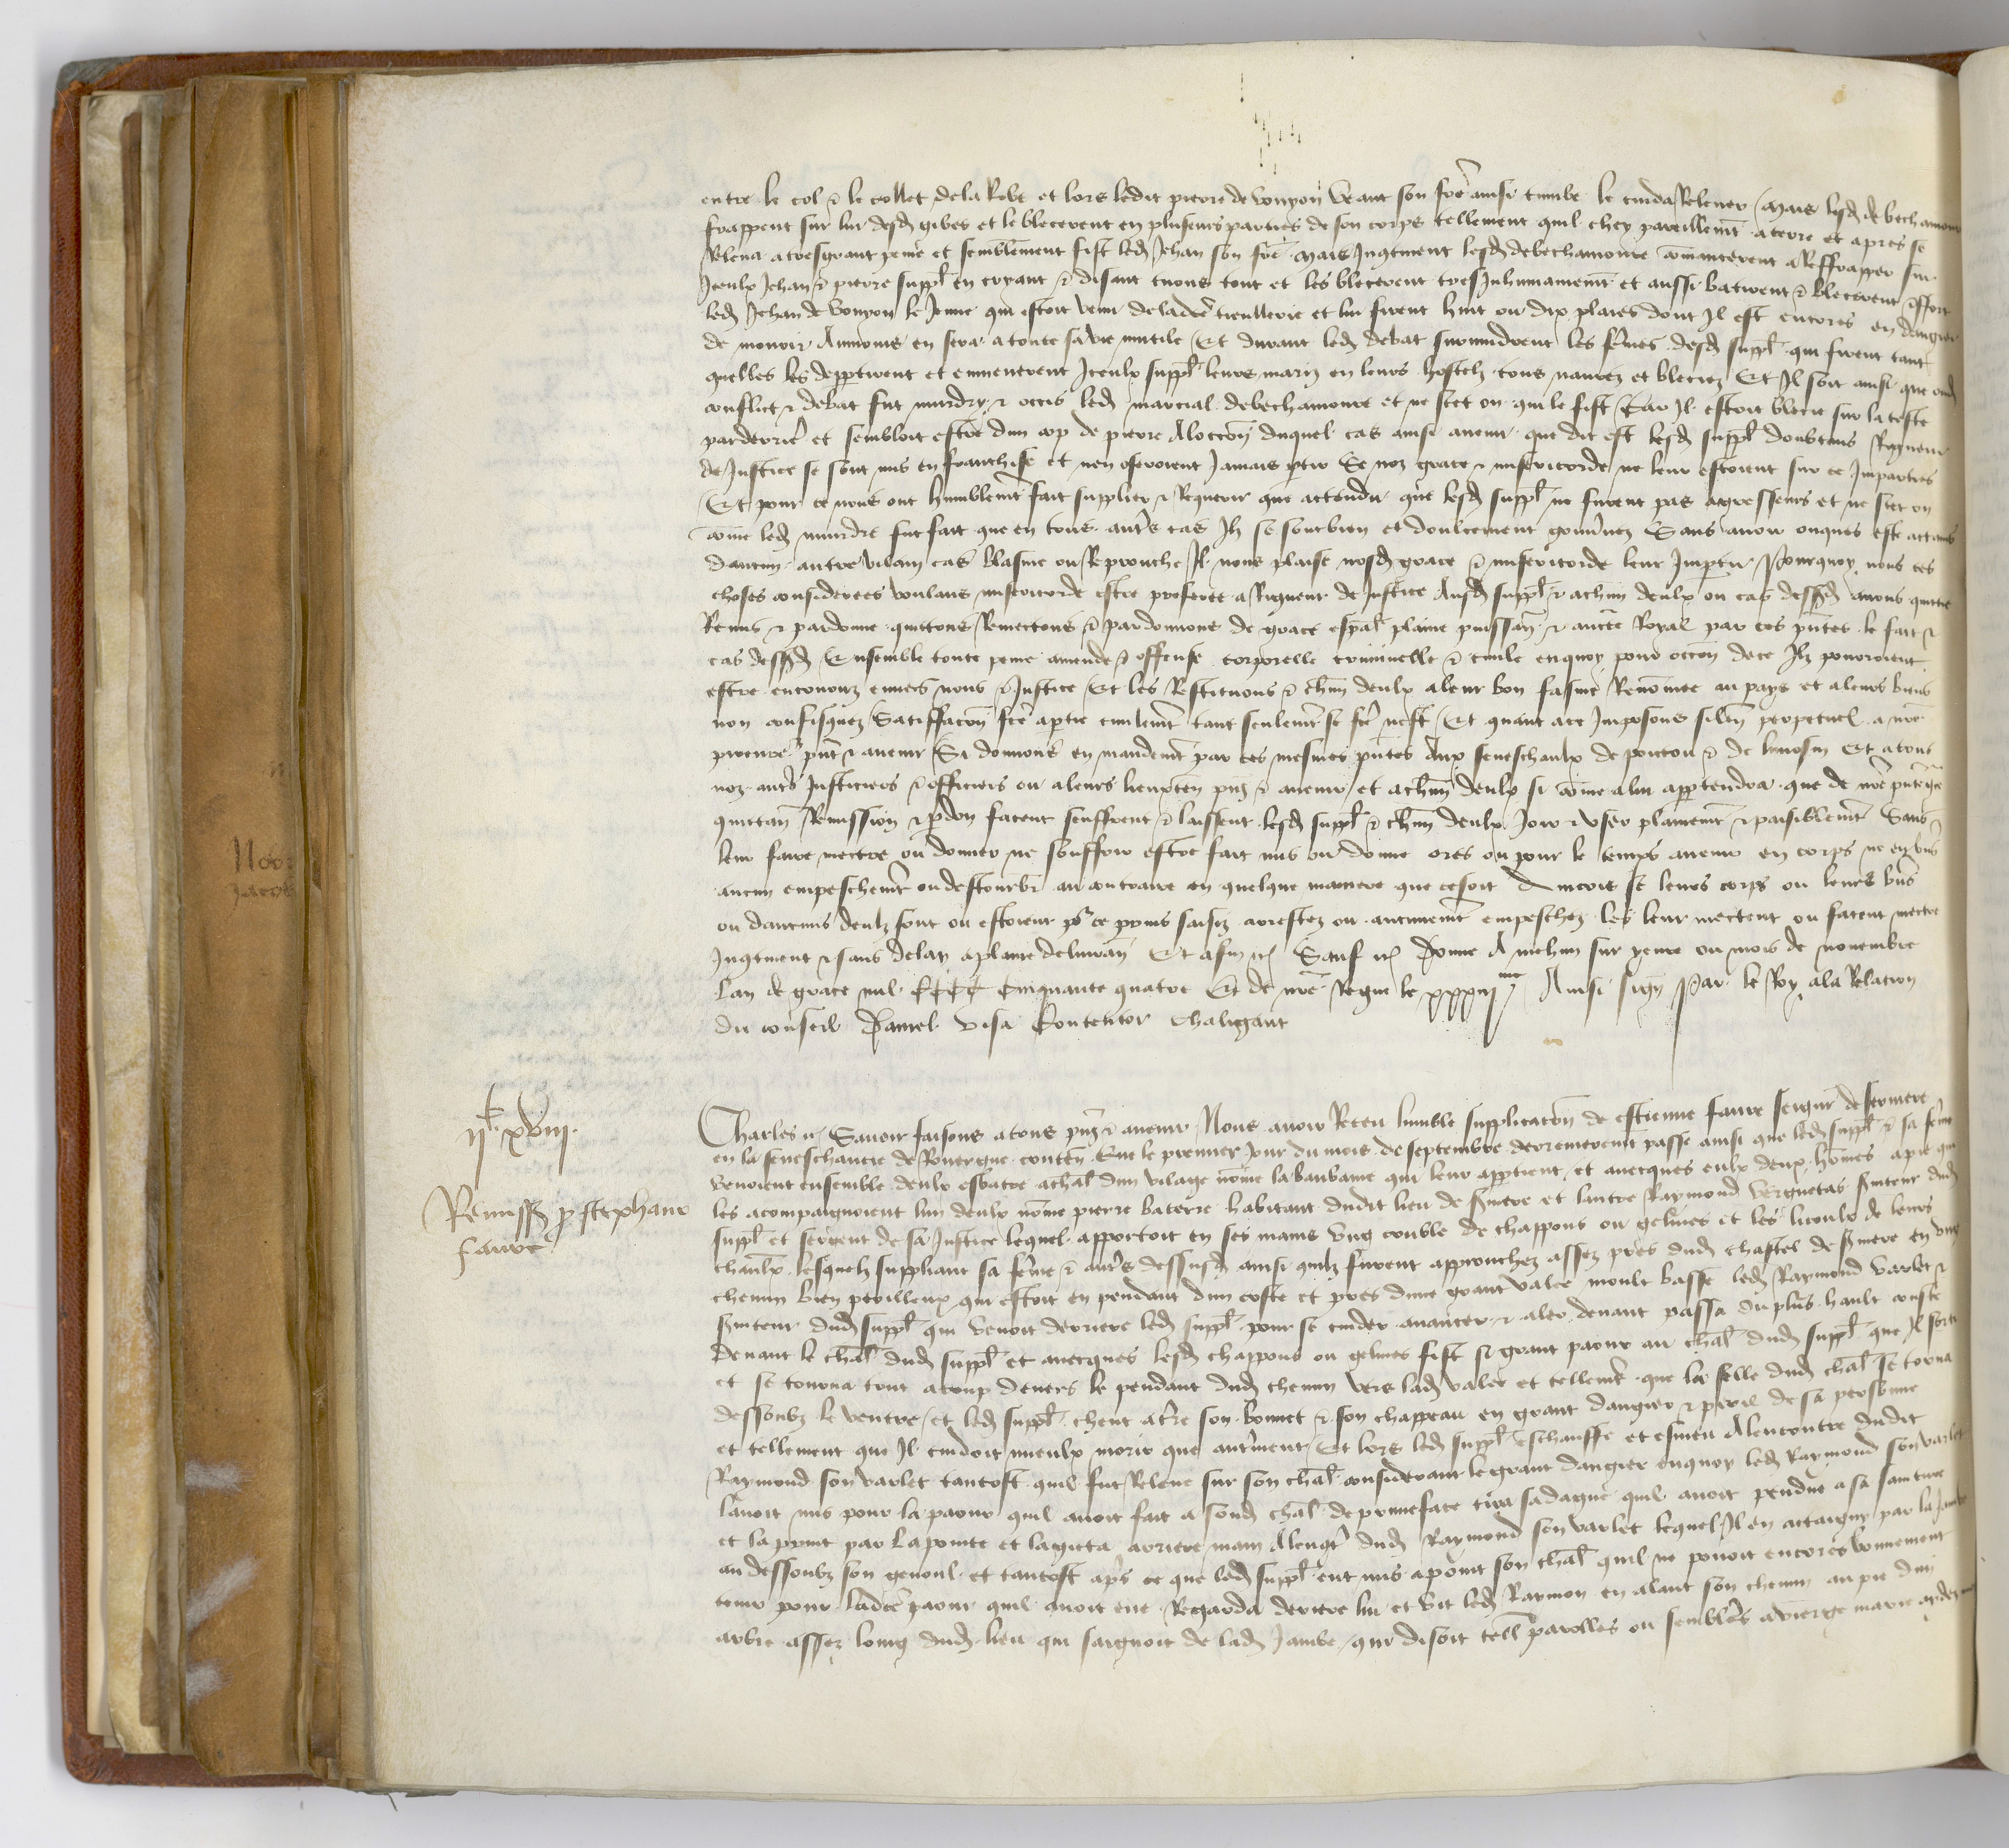 entre le col & le collet de la robe et lors ledit pierre de vouyon veant son fre ainsi tumbe le cuida relever mais lesd de bechamoure
frapperent sur lui desd gibes et le blecerent en plusieurs parties de son corps tellement quil chey pareillemt a terre et apres se
releva a tresgrant peine et semblement fist led Jehan son fre mais incontinent lesd debechamoure commancerent a reffrapper sur
Iceulx Jehan & pierre suppl en cryant & disant tuons tout et les blecerent tres Inhumainemt et aussi batirent & blecerent
led Jehan de vouyon le Jeune qui estoit venu de ladre tieullerie et lui firent huit ou dix plaies dont Il est encores en dangier
de mourir Aumoins en sera a toute sa vie mutile Et durant led debat survindrent les femes desd suppl qui firent tant
quelles les deppartirent et emmenerent Iceulx suppl leurs mariz en leurs hostelz tous navrez et bleciez Et Il soit ainsi que oud
conflict & debat fut murdry & occis led marcial debechamoure et ne scet on qui le fist Car Il estoit blecie sur la teste
par derrie et sembloit estre dun cop de pierre A loccon duquel cas ainsi avenu que dit est lesd suppl doubtans Rigueur
de Justice se sont mis en franchise et nen oseroient Jamais partir Se noz grace & misericorde ne leur estoient sur ce Imparties
Et pour ce nous ont humblemt fait supplier & Requerir que attendu que lesd suppl ne furent pas agresseurs et ne scet on
comme led murdre fut fait que en tous autres cas Ilz se sont bien et doulcement gouvernez Sans avoir onques este attains
daucun autre vilain cas blasme ou Reprouche Il nous plaise nosd grace & misericorde leur Impartir Pourquoy nous ces
choses considerees voulans misericorde estre preferee a Rigueur de Justice Ausd suppl & a chun deulx ou cas dessusd avons quicte
Remis & pardonne quictons Remectons & pardonnons de grace espal plaine puissance & aucte Royal par ces pntes le fait &
cas dessusd Ensemble toute peine amende & offense corporelle criminelle & civile en quoy pour occon de ce Ilz pourroient
estre encouruz envers nous & Justice Et les Restituons & chun deulx a leur bon fasme Renommee au pays et a leurs biens
non confisquez Satiffacon fce a partie civilemt tant seulemt se fce nest Et quant a ce Imposons silence perpetuel a nre
procureur pnt & avenir Si donnons en mandemt par ces mesmes pntes Aux seneschaulx de poictou & de limosin Et a tous
noz autres Justiciers & officiers ou a leurs lieuxten pns & avenir et a chun deulx si comme a lui appartendra que de nre pnte grace
quictan Remission & pardon facent seuffrent & laissent lesd suppl & chun deulx Joir & user plainemt & paisiblemt Sans
leur faire mectre ou donner ne souffrir estre fait mis ou donne ores ou pour le temps avenir en corps ne en biens
aucun empeschemt ou destourbr au contraire en quelque maniere que ce soit Aincois se leurs corps ou leurs biens
ou daucuns deulx sont ou estoient pour ce prins saisiz arrestez ou autrement empeschez les leur mectent ou facent mectre
Incontinent & sans delay a plaine delivran Et afin etc Sauf etc Donne A mehun sur yevre ou mois de novembre
Lan de grace mil CCCC Cinquante quatre Et de nre Regne le xxxiijme Ainsi sign Par le Roy a la Relacion
du conseil Daniel visa Contentor Chaligaut
ijc xviij
Remiss p stephano
favre
Charles etc Savoir faisons a tous pns & avenir Nous avoir Receu lumble supplicacon de estienne favre seigneur de sermere
en la seneschaucie de Rouergue conten Que le premier Jour du mois de septembre derrenierement passe ainsi que led suppl & sa feme
venoient ensemble deulx esbatre a chal dun vilage nomme la banbanie qui leur appartient et avecques eulx deux hommes a pie qui
les acompaignoient lun deulx nomme pierre baterre habitant dudit lieu de sermere et lautre Raymond verguetas serviteur dud
suppl et servent de sa Justice lequel apportoit en ses mains ung couble de chappons ou gelines et les licoulx de leurs
chaulx Lesquelz suppliant sa feme & autres dessusd ainsi quilz furent approuchez assez pres dud chastel de sermere en ung
chemin bien perilleux qui estoit en pendant dun coste et pres dune grant valee moult basse led Raymond varlet &
serviteur dud suppl qui venoit derriere led suppl pour se cuider avancer & aler devant passa du plus hault couste
Devant le chal dud suppl et avecques lesd chappons ou gelines fist si grant paour au chal dud suppl que Il
et se tourna tout a coup devers le pendant dud chemin vers lad valee et tellemt que la selle dud chal se torna
dessoubz le ventre et led suppl cheut a terre son bonnet & son chappeau en grant dangier & peril de sa personne
et tellement que Il cuidoit mieulx morir que autrement Et lors led suppl eschauffe et esmeu A lencontre dudit
Raymond son varlet tantost quil fut Releve sur son chal considerant le grant dangier en quoy led Raymond son varlet
lavoit mis pour la paour quil avoit fait a sond chal de primeface tira sa dague quil avoit pendue a sa sainture
et la print par la pointe et la gicta arriere main A lencontre dud Raymond son varlet lequel Il en attaigny par la Jambe
au dessoubz son genoul et tantost apres ce que led suppl eut mis a point son chal quil ne povoit encores bonnement
tenir pour ladce paour quil avoit eue Regarda derriere lui et vit led Raymon en alant son chemin au pie dun
arbre assez loing dud lieu qui saignoit de lad Jambe qui disoit telles parolles ou semblables a vierge marie